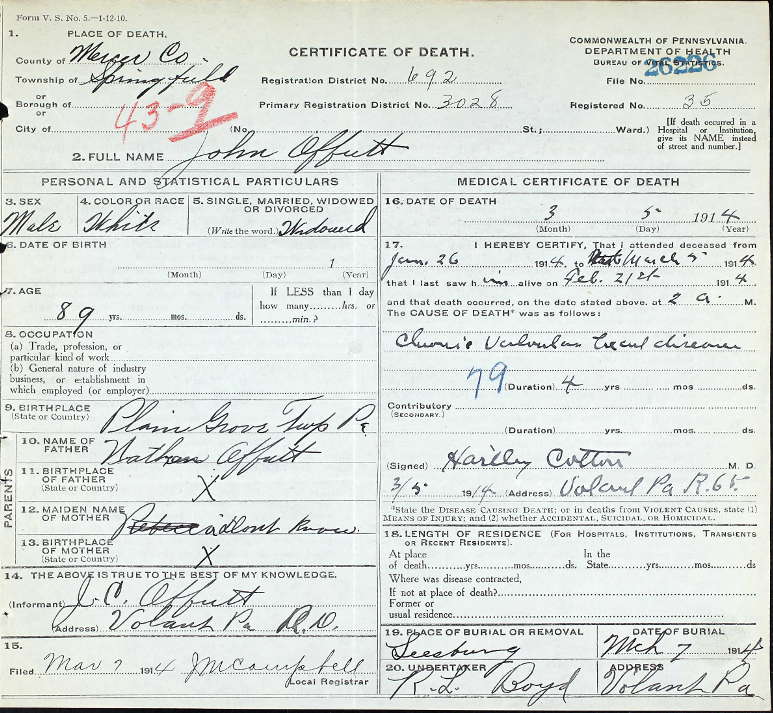 Form V. S. No. 5.—1-12-10.
1. PLACE OF DEATH.
County of Mercer Co.
Township of Springfield
or
Borough of
or
City of
43-9
(No. St.; Ward.)
CERTIFICATE OF DEATH.
Registration District No. 692
Primary Registration District No. 3028
COMMONWEALTH OF PENNSYLVANIA.
DEPARTMENT OF HEALTH
BUREAU OF VITAL STATISTICS.
File No. 26226
Registered No. 35
[If death occurred in a
Hospital or Institution,
give its NAME instead
of street and number.]
2. FULL NAME John Offutt
PERSONAL AND STATISTICAL PARTICULARS
3. SEX
Male
4. COLOR OR RACE
White
5. SINGLE, MARRIED, WIDOWED
OR DIVORCED
(Write the word.) Widowed
6. DATE OF BIRTH
1
(Month) (Day) (Year)
7. AGE
89 yrs. mos. ds.
If LESS than 1 day
how many hrs. or
min.?
8. OCCUPATION
(a) Trade, profession, or
particular kind of work
(b) General nature of industry
business, or establishment in
which employed (or employer)
9. BIRTHPLACE
(State or Country)
Plain Grove Twp Pa
PARENTS
10. NAME OF
FATHER
Nathan Offutt
11. BIRTHPLACE
OF FATHER
(State or Country)
X
12. MAIDEN NAME
OF MOTHER
dont know
13. BIRTHPLACE
OF MOTHER
(State or Country)
X
14. THE ABOVE IS TRUE TO THE BEST OF MY KNOWLEDGE.
(Informant) J. C. Offutt
(Address) Volant Pa R.D.
15.
Filed Mar 7 1914 J M Campbell
Local Registrar
MEDICAL CERTIFICATE OF DEATH
16. DATE OF DEATH
3 5 1914
(Month) (Day) (Year)
17. I HEREBY CERTIFY, That I attended deceased from
Jan. 26 1914 to March 5 1914
that I last saw him alive on Feb. 21st 1914
and that death occurred, on the date stated above, at 2 a. M.
The CAUSE OF DEATH* was as follows:
Chronic Valvular heart disease
79
(Duration) 4 yrs mos ds.
Contributory
(SECONDARY.)
(Duration) yrs mos ds.
(Signed) Hartley Cotton M. D.
3/5 1914 (Address) Volant Pa R. 65.
*State the DISEASE CAUSING DEATH; or in deaths from VIOLENT CAUSES, state (1)
MEANS OF INJURY; and (2) whether ACCIDENTAL, SUICIDAL, OR HOMICIDAL.
18. LENGTH OF RESIDENCE (FOR HOSPITALS, INSTITUTIONS, TRANSIENTS
OR RECENT RESIDENTS).
At place In the
of death yrs. mos. ds. State yrs. mos. ds
Where was disease contracted,
If not at place of death?
Former or
usual residence
19. PLACE OF BURIAL OR REMOVAL
Leesburg
DATE OF BURIAL
Mch 7 1914
20. UNDERTAKER
R. L. Boyd
ADDRESS
Volant Pa